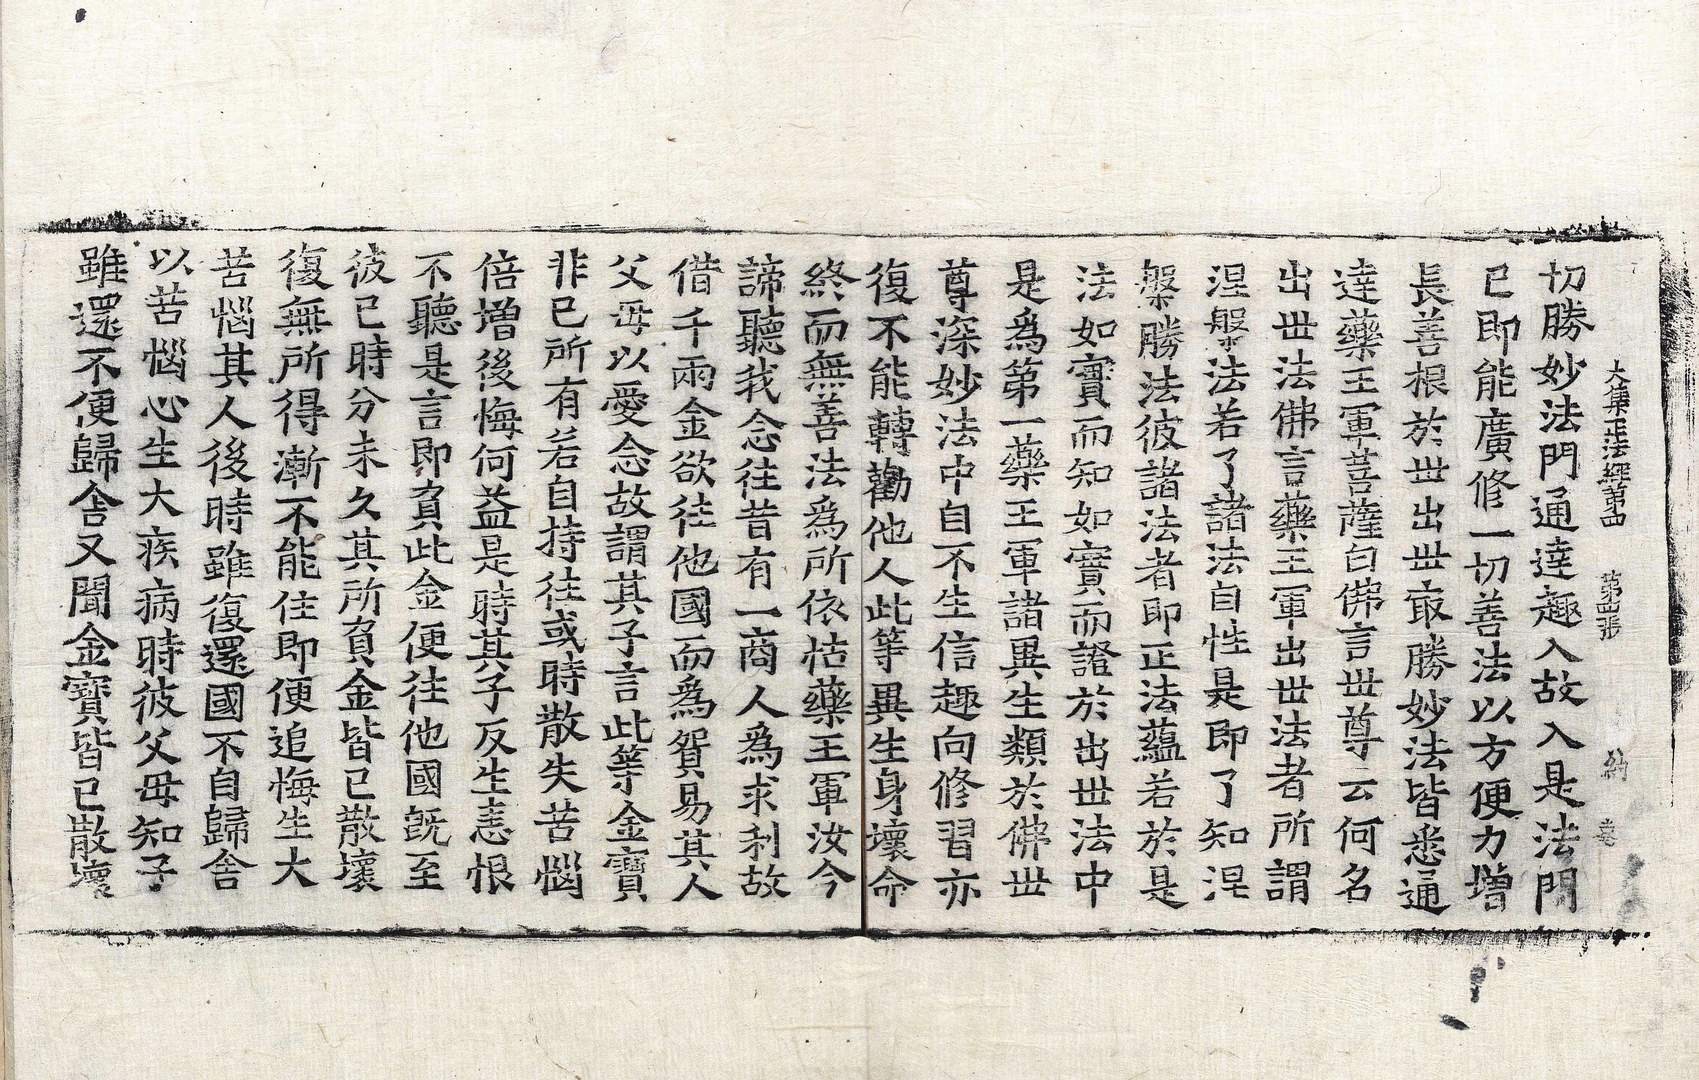 大集正法經第四 第四張 約
切勝妙法門通達趣入故入是法門
已即能廣修一切善法以方便力增
長善根於世出世㝡勝妙法皆悉通
達藥王軍菩薩白佛言世尊云何名
出世法佛言藥王軍出世法者所謂
涅槃法若了諸法自性是即了知涅
槃勝法彼諸法者即正法蘊若於是
法如實而知如實而證於出世法中
是爲第一藥王軍諸異生類於佛世
尊深妙法中自不生信趣向修習亦
復不能轉勸他人此等異生身壞命
終而無善法爲所依怙藥王軍汝今
諦聽我念往昔有一商人爲求利故
借千兩金欲往他國而爲貿易其人
父母以愛念故謂其子言此等金寶
非已所有若自持往或時散失苦惱
倍增後悔何益是時其子反生恚恨
不聽是言即負此金便往他國旣至
彼已時分未久其所負金皆已散壞
復無所得漸不能住即便追悔生大
苦惱其人後時雖復還國不自歸舍
以苦惱心生大疾病時彼父母知子
雖還不便歸舍又聞金寶皆已散壞